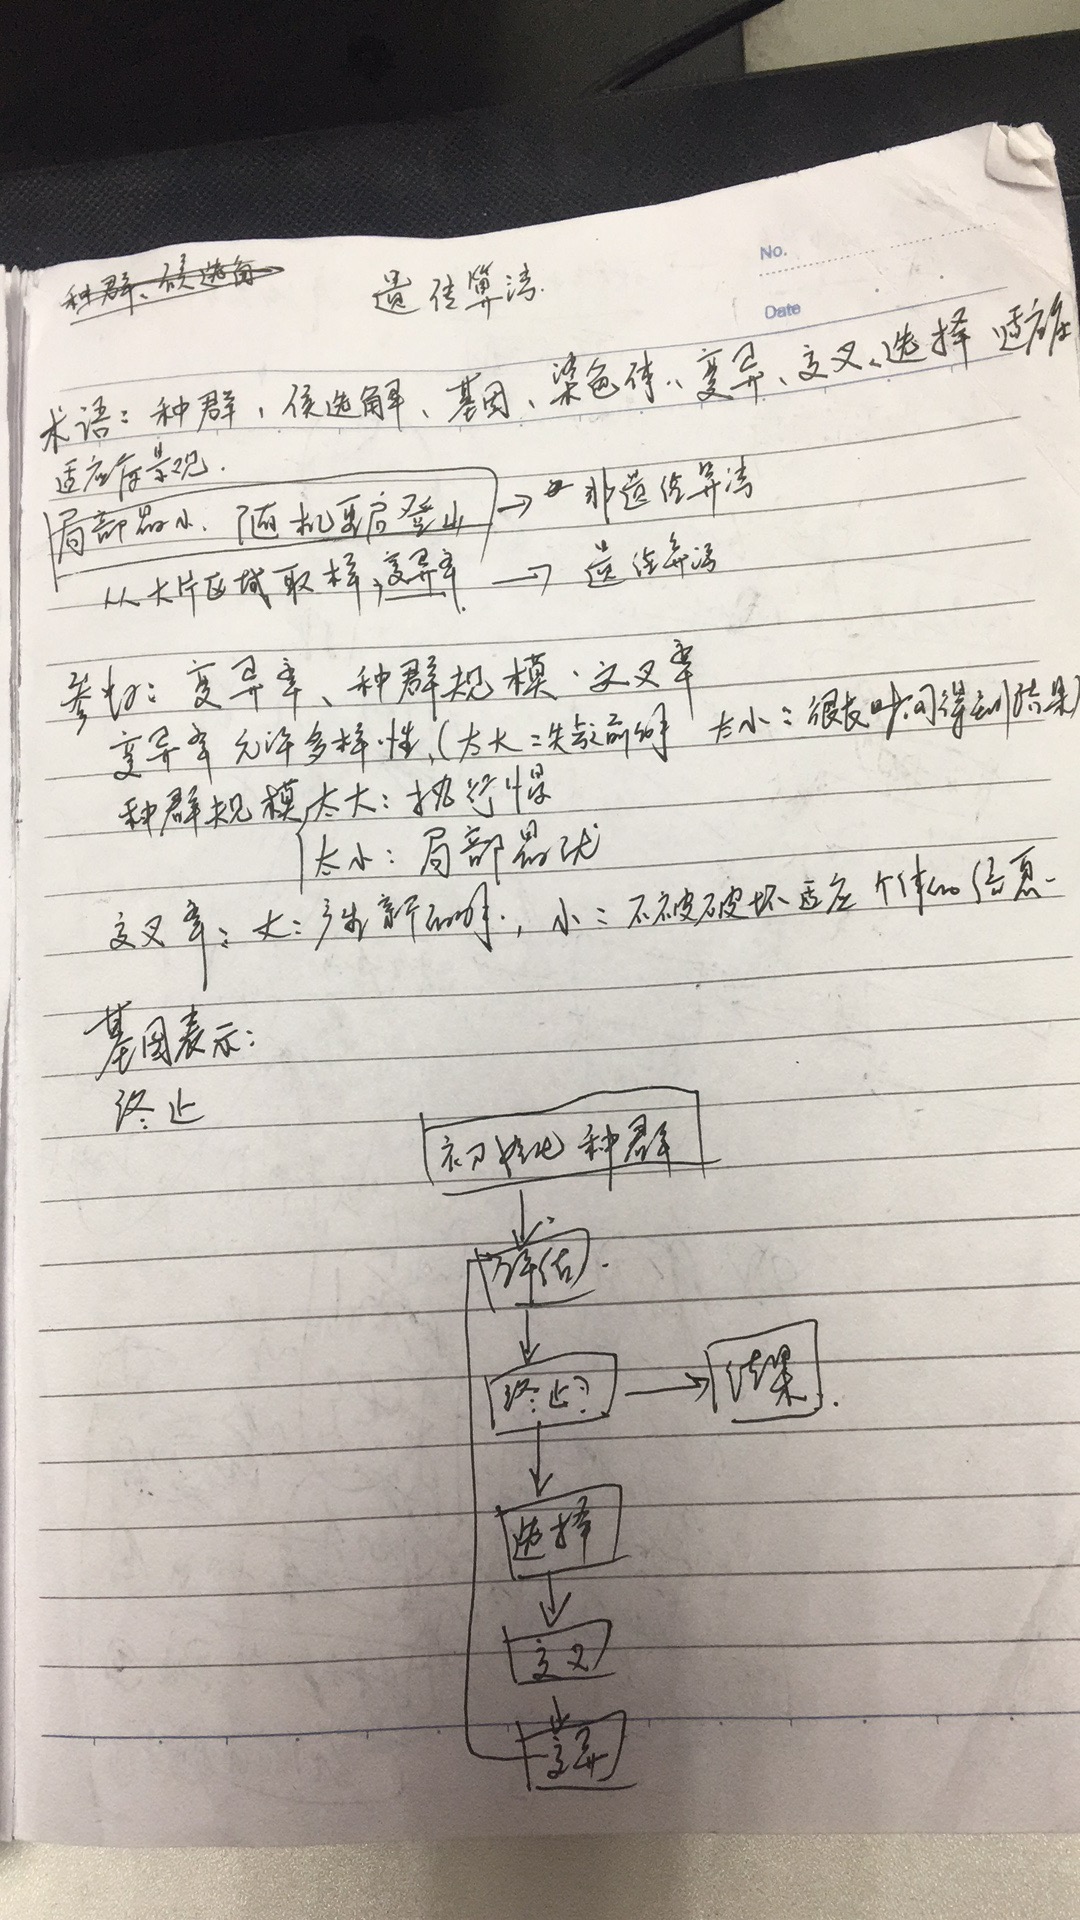 种群、候选角
遗传算法.
No.
Date
术语：种群、候选解、基因、染色体、变异、交叉、选择 适应
适应度景观.
局部最小. 随机重启登山 → 非遗传算法
从大片区域取样,变异率 → 遗传算法
参数：变异率、种群规模.交叉率
变异率 允许多样性,(太大：失去前的 太小：很长时间得到结果)
种群规模 太大：执行慢
太小：局部最优
交叉率：大：产生新的, 小：不被破坏适应个体的信息.
基因表示：
终止
初始化种群
评估.
终止？ → 结果.
选择
交叉
变异